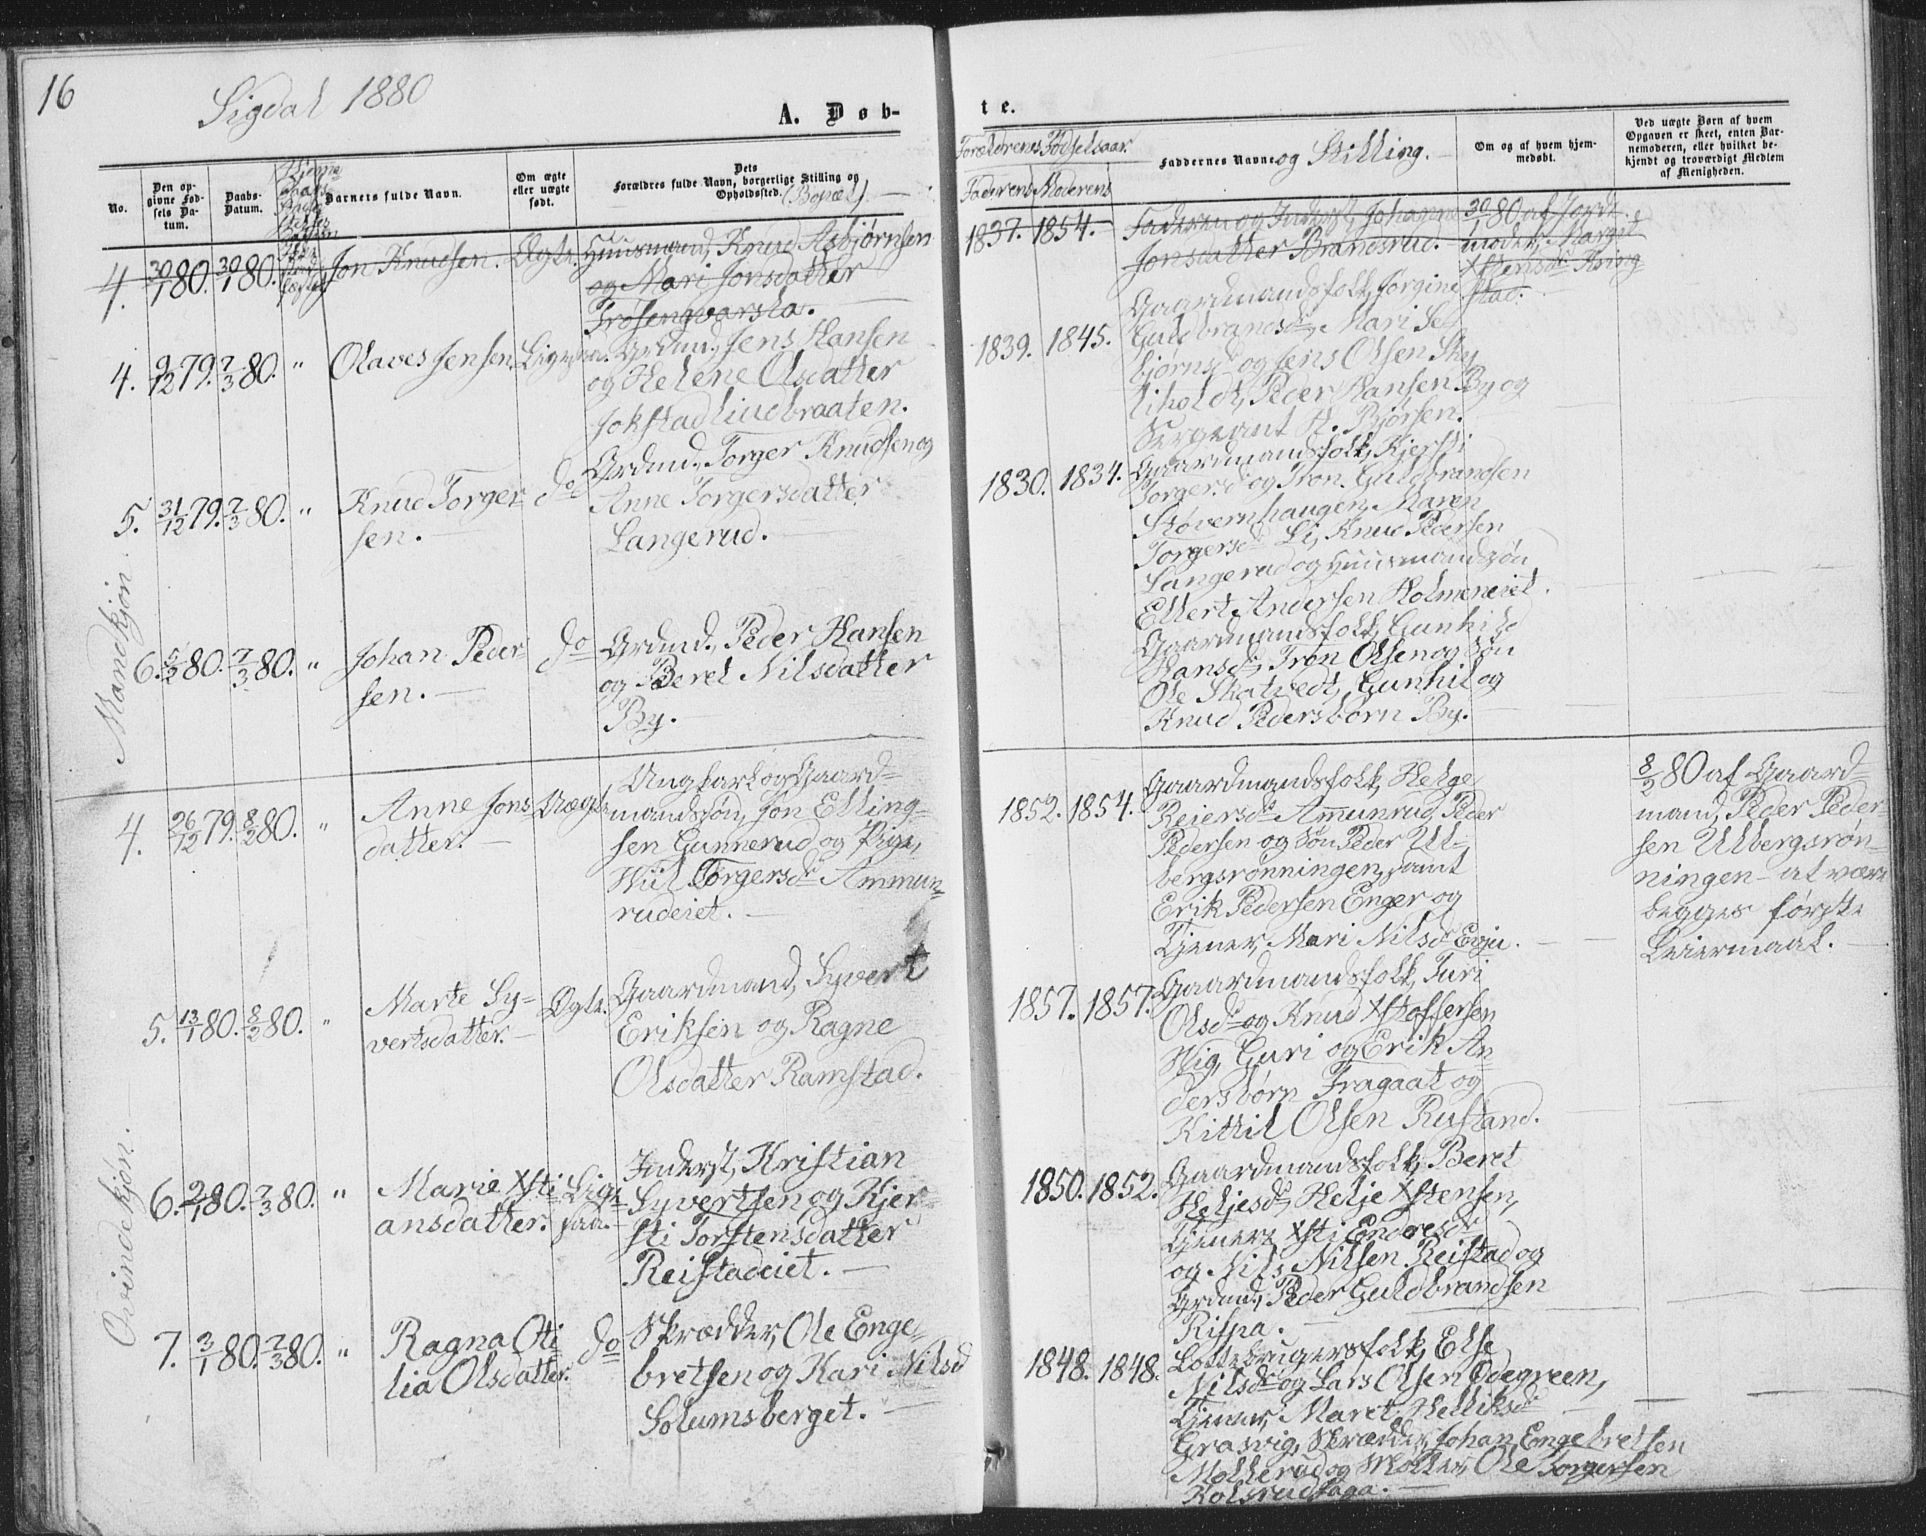 16
Sigdal 1880
A. Døb-
te.
No.
Den op-
givne Fød-
sels Da-
tum.
Daabs-
Datum.
Barnets fulde Navn.
Om ægte
eller uægte
født.
Dets
Forældres fulde Navn, borgerlige Stilling og
Opholdssted. (Bopæl).
Forældrenes Fødselsaar.
Faderens Moderens
Faddernes Navne og Stilling.
Om og af hvem hjem-
medøbt.
Ved uægte Børn af hvem
Opgaven er skeet, enten Bar-
nemoderen, eller hvilket be-
kjendt og troværdigt Medlem
af Menigheden.
Mandkjøn.
4. 30/1 80. 30/1 80. Jon Knudsen. Ægte. Huusmand, Knud Asbjørnsen
og Mari Jonsdatter
Trøsengvarsla.
1837. 1854. Faderen og Inderst, Johanne
Jonsdatter Brandsrud.
30/1 80 af Jord-
moder, Margit
Xstensdr
stad.
4. 9/12 79. 7/3 80. " Olaves Jensen. Ligesaa. Grdmd. Jens Hansen
og Helene Olsdatter
Jokstadliudbraaten.
1839. 1845. Gaardmandsfolk, Jørgine
Guldbrandsdr, Mari Se-
bjørnsdr og Jens Olsen Sky
liholdt, Peder Hansen By og
Sergeant H. Bjørsen.
5. 31/12 79. 7/3 80. " Knud Torger-
sen. do Grdmd. Torger Knudsen og
Anne Torgersdatter
Langerud.
1830. 1834. Gaardmandsfolk, Kjersti
Torgersdr og Tron Guldbrandsen
Støvernhaugen, Maren
Torgersdr Li, Knud Pedersen
Langerud og Huusmandssøn
Ellert Andersen Holmeneiet.
6. 5/2 80. 7/3 80. " Johan Peder-
sen. do Grdmd. Peder Hansen
og Beret Nilsdatter
By.
Gaardmandsfolk, Gunhild
Hansdr, Tron Olsen og Søn
Ole Skatvedt, Gunhil og
Knud Pedersbørn By.
Qvindekjøn.
4. 26/12 79. 8/2 80. " Anne Jons-
datter. Uægte. Ungkarl og Gaard-
mandssøn, Jon Elling-
sen Gunnerud og Pige,
Wiil Torgersdr Ammun-
rudeiet.
1852. 1854. Gaardmandsfolk, Helge
Reiersdr Ammunrud, Peder
Pedersen og Søn Peder Ul-
bergsrønningen, samt
Erik Pedersen Enger og
Tjener, Mari Nilsdr Evju.
8/2 80 af Gaard-
mand, Peder Peder-
sen Ulbergsrøn-
ningen - at være
begges første
Leiermaal.
5. 13/1 80. 8/2 80. " Marte Sy-
vertsdatter. Ægte. Gaardmand, Syvert
Eriksen og Ragne
Olsdatter Ramstad.
1857. 1857. Gaardmandsfolk, Turi
Olsdr og Knud Xstoffersen
Wig, Guri og Erik An-
dersbørn Fragaat og
Kittil Olsen Rustand.
6. 2/1 80. 7/3 80. " Marie Xsti-
ansdatter. Lige-
saa. Inderst, Kristian
Syvertsen og Kjer-
sti Torstensdatter
Reistadeiet.
1850. 1852. Gaardmandsfolk, Beret
Heljesdr, Helje Xstensen,
Tjenere Xsti Endresdr
og Nils Nilsen Reistad og
Grdmd, Peder Guldbrandsen
Rispa.
7. 3/1 80. 7/3 80. " Ragna Oti-
lia Olsdatter. do Skrædder, Ole Enge-
bretsen og Kari Nilsd
Solumsberget.
1848. 1848. Lottebrugersfolk, Else
Nilsdr og Lars Olsen Ødegreen,
Tjener, Maret Helliksdr
Grasvig, Skrædder, Johan Engebretsen
Mollerud og Møller, Ole Torgersen
Kolsrudsaga.